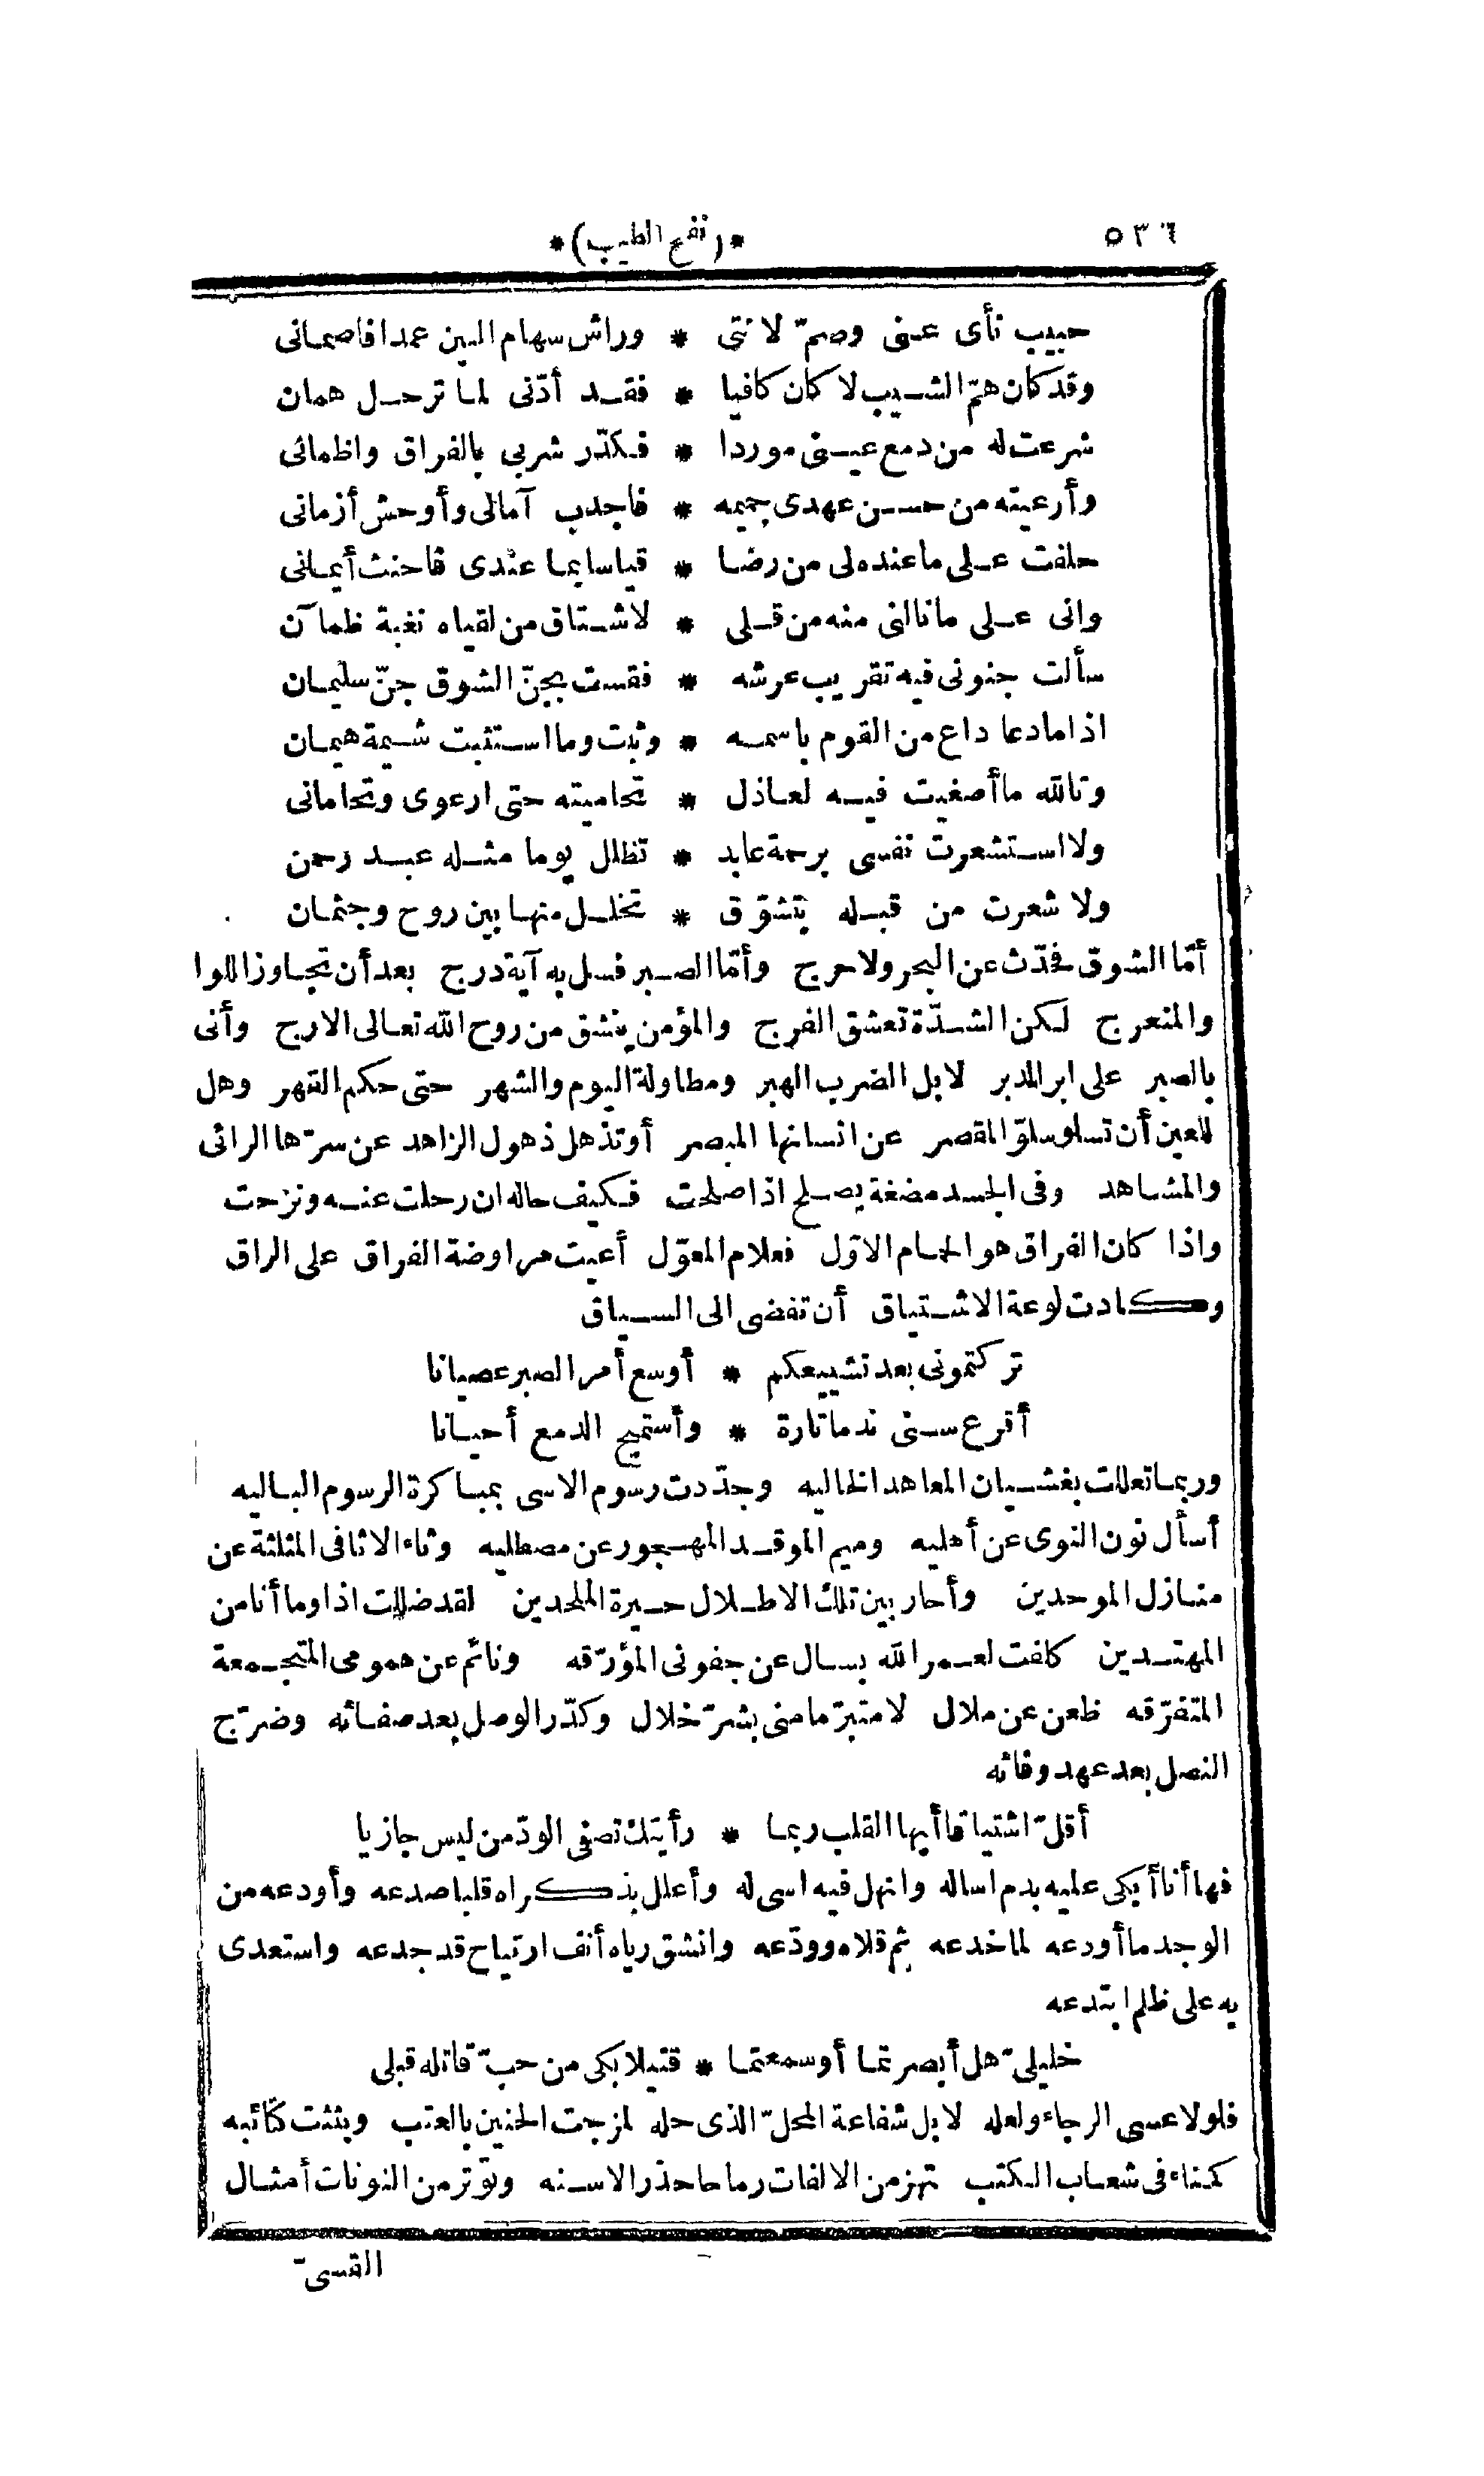 ٥٣٦
*(نفح الطيب)*
حبيب نأى عنى وصمّ لانتى * وراش سهام البين عمدا فاصمانى
وقد كان همّ الشيب لا كان كافيا * فقد أدّنى لما ترحل همان
شرعت له من دمع عينى موردا * فكدّر شربى بالفراق واظمانى
وأرعيته من حسن عهدى جميمه * فاجدب آمالى وأوحش أزمانى
حلفت على ما عنده لى من رضا * قياسا بما عندى فاحنث أيمانى
وانى على ما نالنى منه من قلى * لاشتاق من لقياه نغبة ظمآن
سألت جنونى فيه تقريب عرشه * فقست بجنّ الشوق جنّ سليمان
اذا ما دعا داع من القوم باسمه * وثبت وما استثبت شيمة هيمان
وتالله ما أصغيت فيه لعاذل * تحاميته حتى ارعوى وتحامانى
ولا استشعرت نفسى برحمة عابد * تظلل يوما مثله عبد رحمن
ولا شعرت من قبله بتشوّق * تخلل منها بين روح وجثمان
أمّا الشوق فحدّث عن البحر ولا حرج وأمّا الصبر فسل به آية درج بعد أن تجاوز اللوا
والمنعرج لكن الشدّة تعشق الفرج والمؤمن ينشق من روح الله تعالى الارج وأنى
بالصبر على ابر الدبر لا بل الضرب الهبر ومطاولة اليوم والشهر حتى حكم القهر وهل
للعين أن تسلو سلوّ المقصر عن انسانها المبصر أو تذهل ذهول الزاهد عن سرّها الرائى
والمشاهد وفى الجسد مضغة يصلح اذا صلحت فكيف حاله ان رحلت عنه ونزحت
واذا كان الفراق هو الحمام الاوّل فعلام المعوّل أعيت مراوضة الفراق على الراق
وكادت لوعة الاشتياق أن تفضى الى السياق
تركتمونى بعد تشييعكم * أوسع أمر الصبر عصيانا
أقرع سنى ندما تارة * وأستميح الدمع أحيانا
وربما تعللت بغشيان المعاهد الخاليه وجدّدت رسوم الاسى بمباكرة الرسوم الباليه
أسأل نون النوى عن أهليه وميم الموقد المهجور عن مصطليه وثاء الاثافى المثلثة عن
منازل الموحدين وأحار بين تلك الاطلال حيرة الملحدين لقد ضللت اذا وما أنا من
المهتدين كلفت لعمر الله بسال عن جفونى المؤرّقه ونائم عن همومى المتجمعة
المتفرّقه ظعن عن ملال لا متبرّما منى بشرّ خلال وكدّر الوصل بعد صفائه وضرّج
النصل بعد عهد وفائه
أقلّ اشتياقا أيها القلب ربما * رأيتك تصفى الودّ من ليس جازيا
فها أنا أبكى عليه بدم اساله وانهل فيه اسى له وأعلل بذكراه قلبا صدعه وأودعه من
الوجد ما أودعه لما خدعه ثم قلاه وودّعه وانشق رياه أنف ارتياح قد جدعه واستعدى
به على ظلم ابتدعه
خليلىّ هل أبصرتما أو سمعتما * قتيلا بكى من حبّ قاتله قبلى
فلولا عسى الرجاء ولعله لا بل شفاعة المحلّ الذى حله لمزجت الحنين بالعتب وبثثت كتائبه
كمناء فى شعاب الكتب تهز من الالفات رماحا حذر الاسنه وتوتر من النونات أمثال
القسىّ